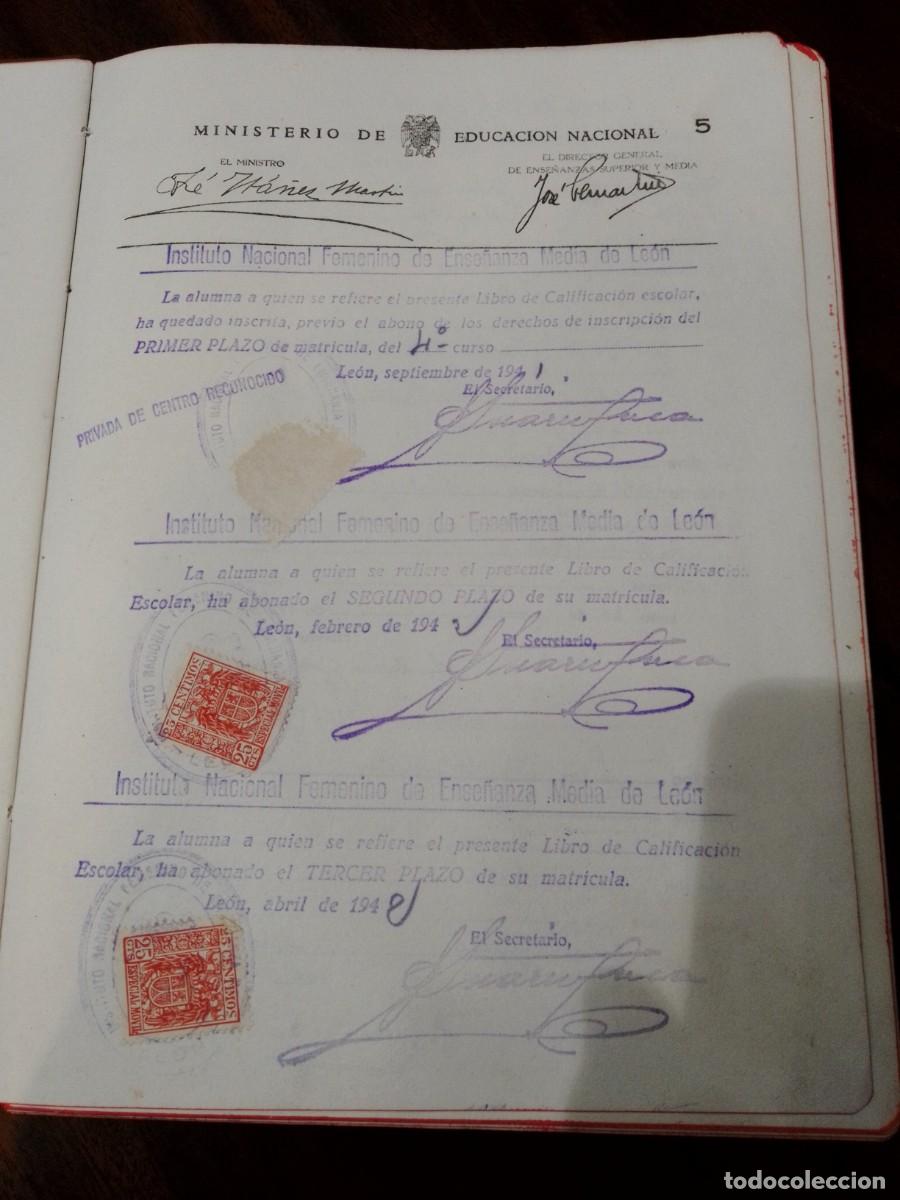 MINISTERIO DE EDUCACION NACIONAL 5
EL MINISTRO
EL DIRECTOR GENERAL
DE ENSEÑANZAS SUPERIOR Y MEDIA
José Ibáñez Martín
José Pemartín
Instituto Nacional Femenino de Enseñanza Media de León
La alumna a quien se refiere el presente Libro de Calificación escolar,
ha quedado inscrita, previo el abono de los derechos de inscripción del
PRIMER PLAZO de matrícula, del 4º curso
León, septiembre de 1941
El Secretario,
PRIVADA DE CENTRO RECONOCIDO
Instituto Nacional Femenino de Enseñanza Media de León
La alumna a quien se refiere el presente Libro de Calificación
Escolar, ha abonado el SEGUNDO PLAZO de su matrícula.
León, febrero de 194
El Secretario,
25 CENTIMOS
25 CTS
Instituto Nacional Femenino de Enseñanza Media de León
La alumna a quien se refiere el presente Libro de Calificación
Escolar, ha abonado el TERCER PLAZO de su matrícula.
León, abril de 194
El Secretario,
25 CENTIMOS
25 CTS
ESPECIAL MOVIL
todocoleccion